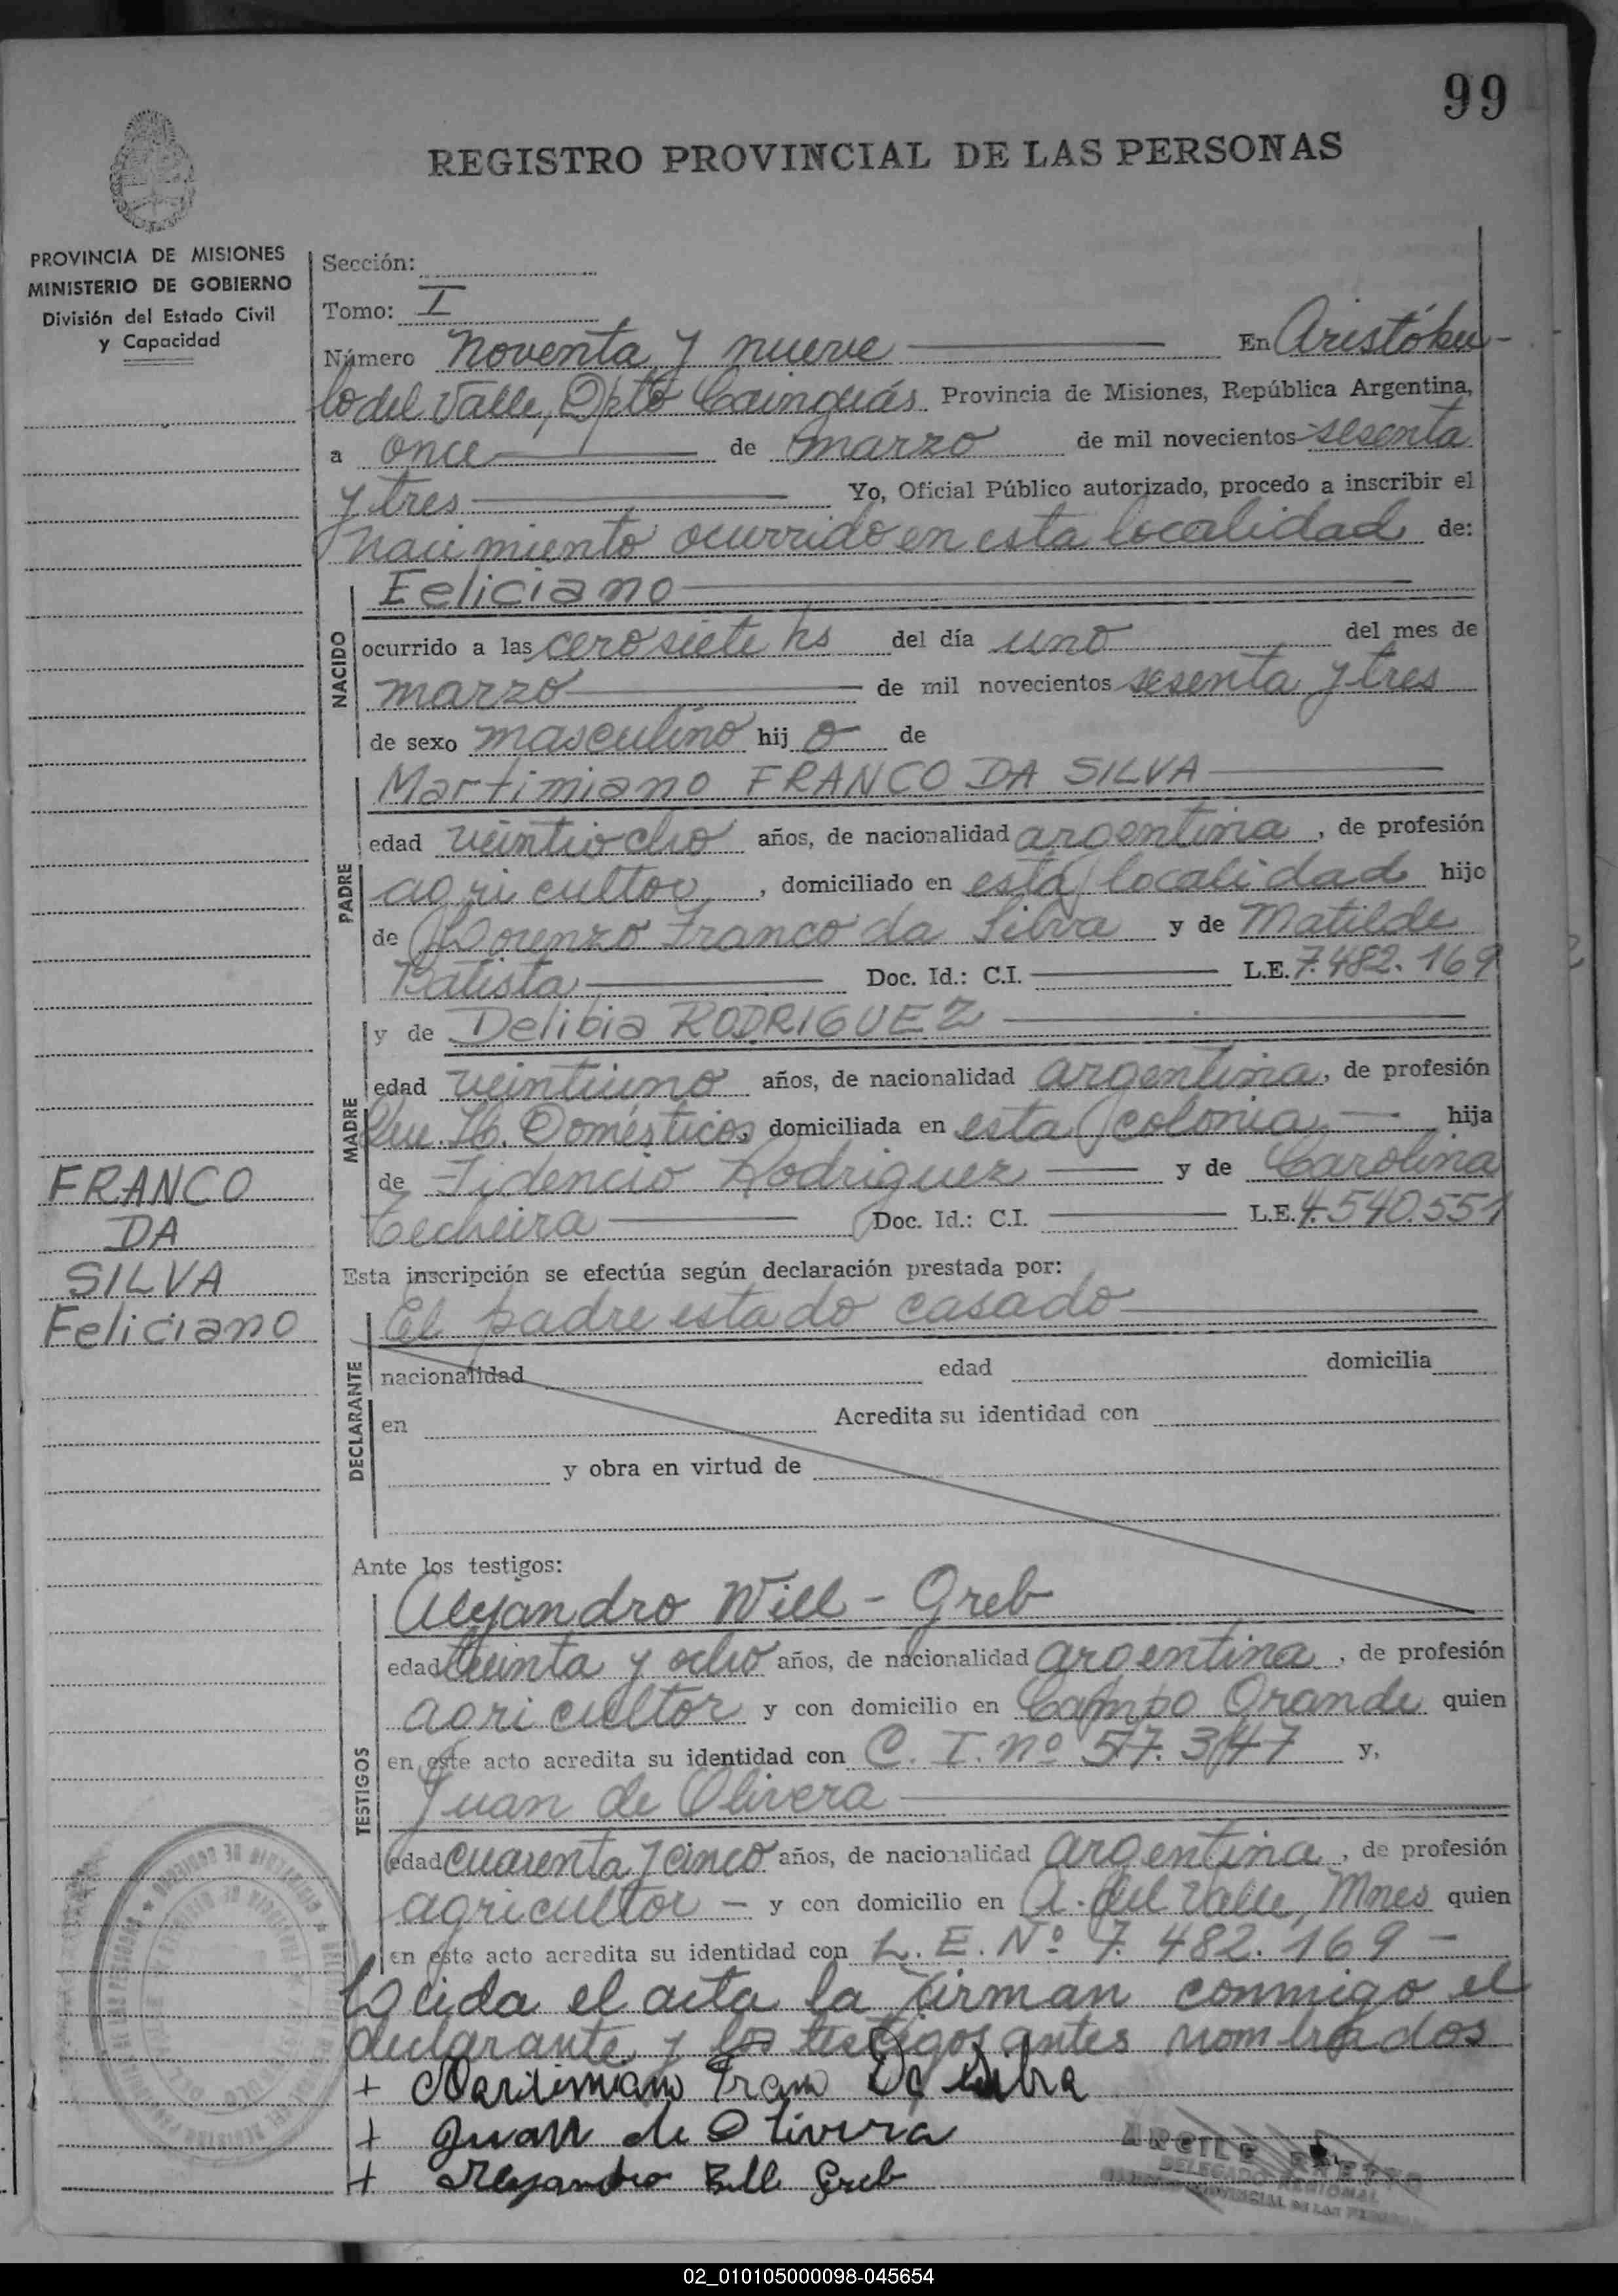 99
REGISTRO PROVINCIAL DE LAS PERSONAS
PROVINCIA DE MISIONES
MINISTERIO DE GOBIERNO
División del Estado Civil
y Capacidad
Sección:
Tomo: I
Número Noventa y nueve En Aristóbu-
lo del Valle, Dpto Cainguás Provincia de Misiones, República Argentina,
a once de marzo de mil novecientos sesenta
y tres Yo, Oficial Público autorizado, procedo a inscribir el
Nacimiento ocurrido en esta localidad de:
NACIDO
Feliciano
ocurrido a las cero siete hs del día uno del mes de
marzo de mil novecientos sesenta y tres
de sexo masculino hij o de
PADRE
Martimiano FRANCO DA SILVA
edad veintiocho años, de nacionalidad argentina, de profesión
agricultor, domiciliado en esta localidad hijo
de Lorenzo Franco da Silva y de Matilde
Batista Doc. Id.: C.I. L.E. 7.482.169
MADRE
y de Delibia RODRIGUEZ
edad veintiuno años, de nacionalidad argentina, de profesión
Domésticos, domiciliada en esta colonia hija
de Fidencio Rodriguez y de Carolina
Techeira Doc. Id.: C.I. L.E. 4.540.551
FRANCO
DA
SILVA
Feliciano
Esta inscripción se efectúa según declaración prestada por:
DECLARANTE
El padre estado casado
nacionalidad edad domicilia
en Acredita su identidad con
y obra en virtud de
Ante los testigos:
TESTIGOS
Alejandro Will - Greb
edad treinta y ocho años, de nacionalidad argentina, de profesión
agricultor y con domicilio en Campo Grande quien
en este acto acredita su identidad con C. I. nº 57.347 y,
Juan de Olivera
edad cuarenta y cinco años, de nacionalidad argentina, de profesión
agricultor - y con domicilio en A. del Valle, Mnes quien
en este acto acredita su identidad con L. E. Nº 7.482.169 -
Leida el acta la firman conmigo el
declarante y los testigos antes nombrados
+ Martimiano Franco Da Silva
+ Juan de Olivera
+ Alejandro Will Greb
DELEGADO REGIONAL
02_010105000098-045654